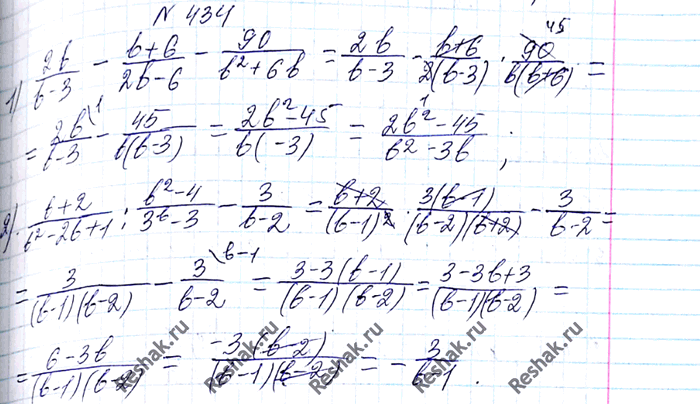 № 434
1) 2b/(b-3) - (b+6)/(2b-6) - 90/(b²+6b) = 2b/(b-3) - (b+6)/(2(b-3)) · 90/(b(b+6)) = 45
= 2b/(b-3) \1 - 45/(b(b-3)) = (2b²-45)/(b( -3)) = (2b²-45)/(b²-3b) ; 1
2). (b+2)/(b²-2b+1) : (b²-4)/(3b-3) - 3/(b-2) = (b+2)/(b-1)² · 3(b-1)/((b-2)(b+2)) - 3/(b-2) =
= 3/((b-1)(b-2)) - 3/(b-2) \b-1 = (3-3(b-1))/((b-1)(b-2)) = (3-3b+3)/((b-1)(b-2)) =
= (6-3b)/((b-1)(b-2)) = -3(b-2)/((b-1)(b-2)) = - 3/(b-1) .
Reshak.ru Reshak.ru Reshak.ru Reshak.ru